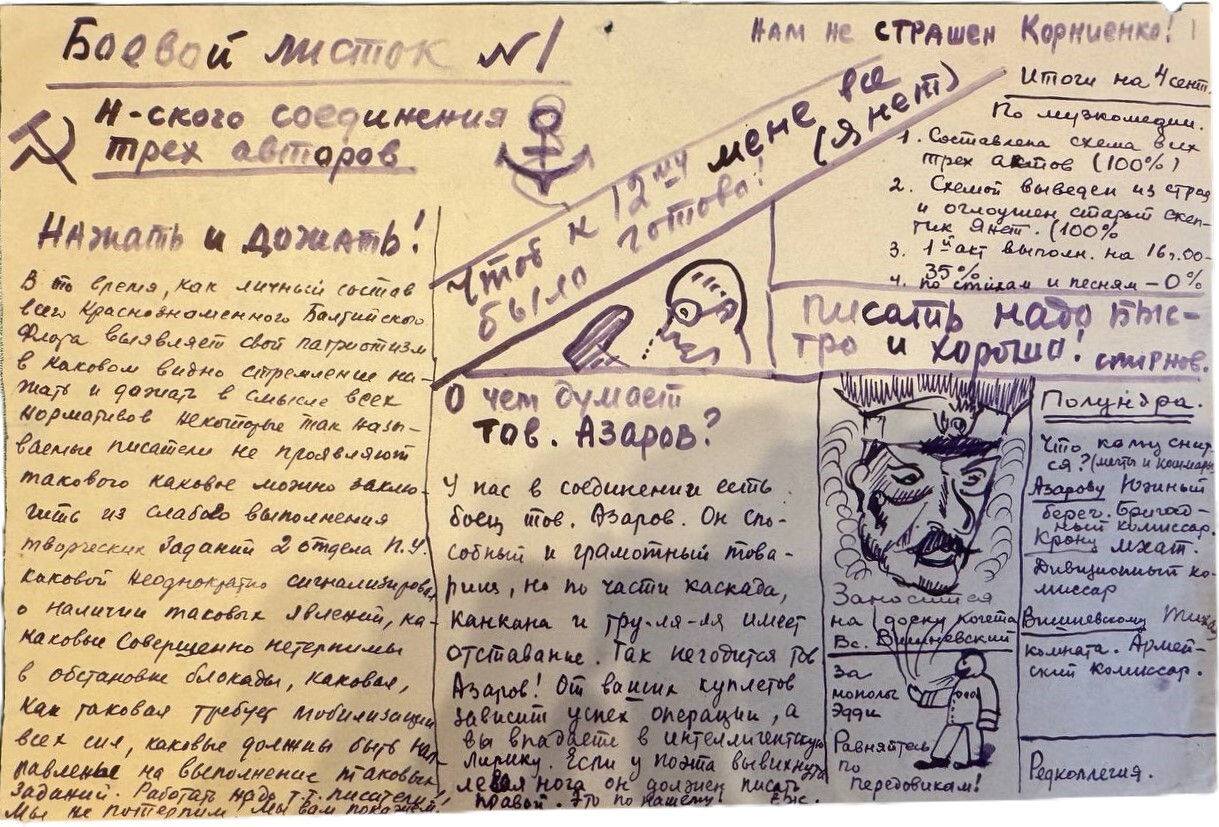 Боевой листок №1
Н-ского соединения
трех авторов
Нажать и дожать!
В то время, как личный состав
всего Краснознаменного Балтийского
Флота выявляет свой патриотизм
в каковом видно стремление на-
жать и дожать в смысле всех
нормативов некоторые так назы-
ваемые писатели не проявляют
такового каковое можно заклю-
чить из слабого выполнения
творческих заданий 2 отдела П.У.
каковой неоднократно сигнализировал
о наличии таковых явлений, ка-
каковые совершенно нетерпимы
в обстановке блокады, каковая,
как таковая требует мобилизации
всех сил, каковые должны быть нап-
равлены на выполнение таковых
заданий. Работать надо т.т. писатели!
Мы не потерпим. Мы вам покажем!
Чтоб к 12му мене все
было готово! (Янет)
Нам не страшен Корниенко!
Итоги на 4 сент.
По музкомедии.
1. Составлена схема всех
трех актов (100%)
2. Схемой выведен из строя
и оглоушен старый скеп-
тик Янет. (100%
3. 1й акт выполн. на 16ч.00-
35%
4. по стихам и песням – 0%
Писать надо быс-
тро и хорошо! Смирнов.
О чем думает
тов. Азаров?
У нас в соединении есть
боец тов. Азаров. Он спо-
собный и грамотный това-
рищ, но по части каскада,
канкана и тру-ля-ля имеет
отставание. Так негодится тов
Азаров! От ваших куплетов
зависит успех операции, а
вы впадаете в интеллигентскую
лирику. Если у поэта вывихнута
левая нога он должен писать
правой. Это по нашему
Заносится
на доску почета
Вс. Вишневский
За
монолог
Эдди
Равняйтесь
по
передовикам!
Полундра.
Что кому снит-
ся? (мечты и кошмары
Азарову Южный
берег. Бригад-
ный комиссар.
Крону МХАТ.
Дивизионный ко-
миссар
Вишневскому Тихая
комната. Армей-
ский комиссар.
Редколлегия.